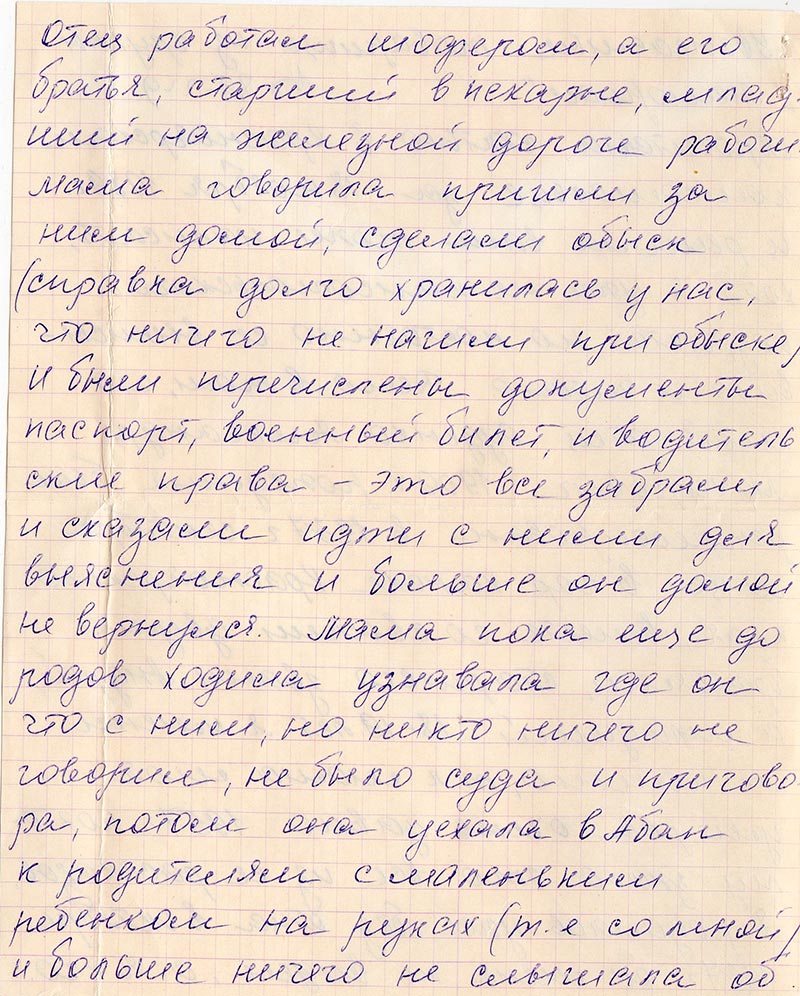 отец работал шофером, а его
братья, старший в пекарне, млад-
ший на железной дороге рабочи
мама говорила пришли за
ним домой, сделали обыск
(справка долго хранилась у нас,
что ничего не нашли при обыске)
и были перечислены документы
паспорт, военный билет, и водитель
ские права – это все забрали
и сказали иди с ними для
выяснения и больше он домой
не вернулся. Мама пока еще до
родов ходила узнавала где он
что с ним, но никто ничего не
говорил, не было суда и пригово-
ра, потом она уехала в Абан
к родителям с маленьким
ребенком на руках (т.е со мной)
и больше ничего не слышала об